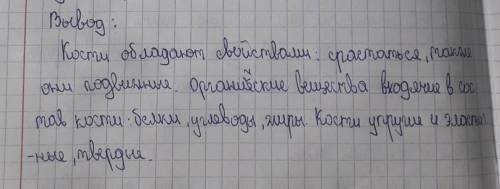 Вывод:
Кости обладают свойствами: срастаться, также
они подвижные. Органические вещества входящие в сос
тав кости: белки, углеводы, жиры. Кости упругие и эласти
-ные, твердые.